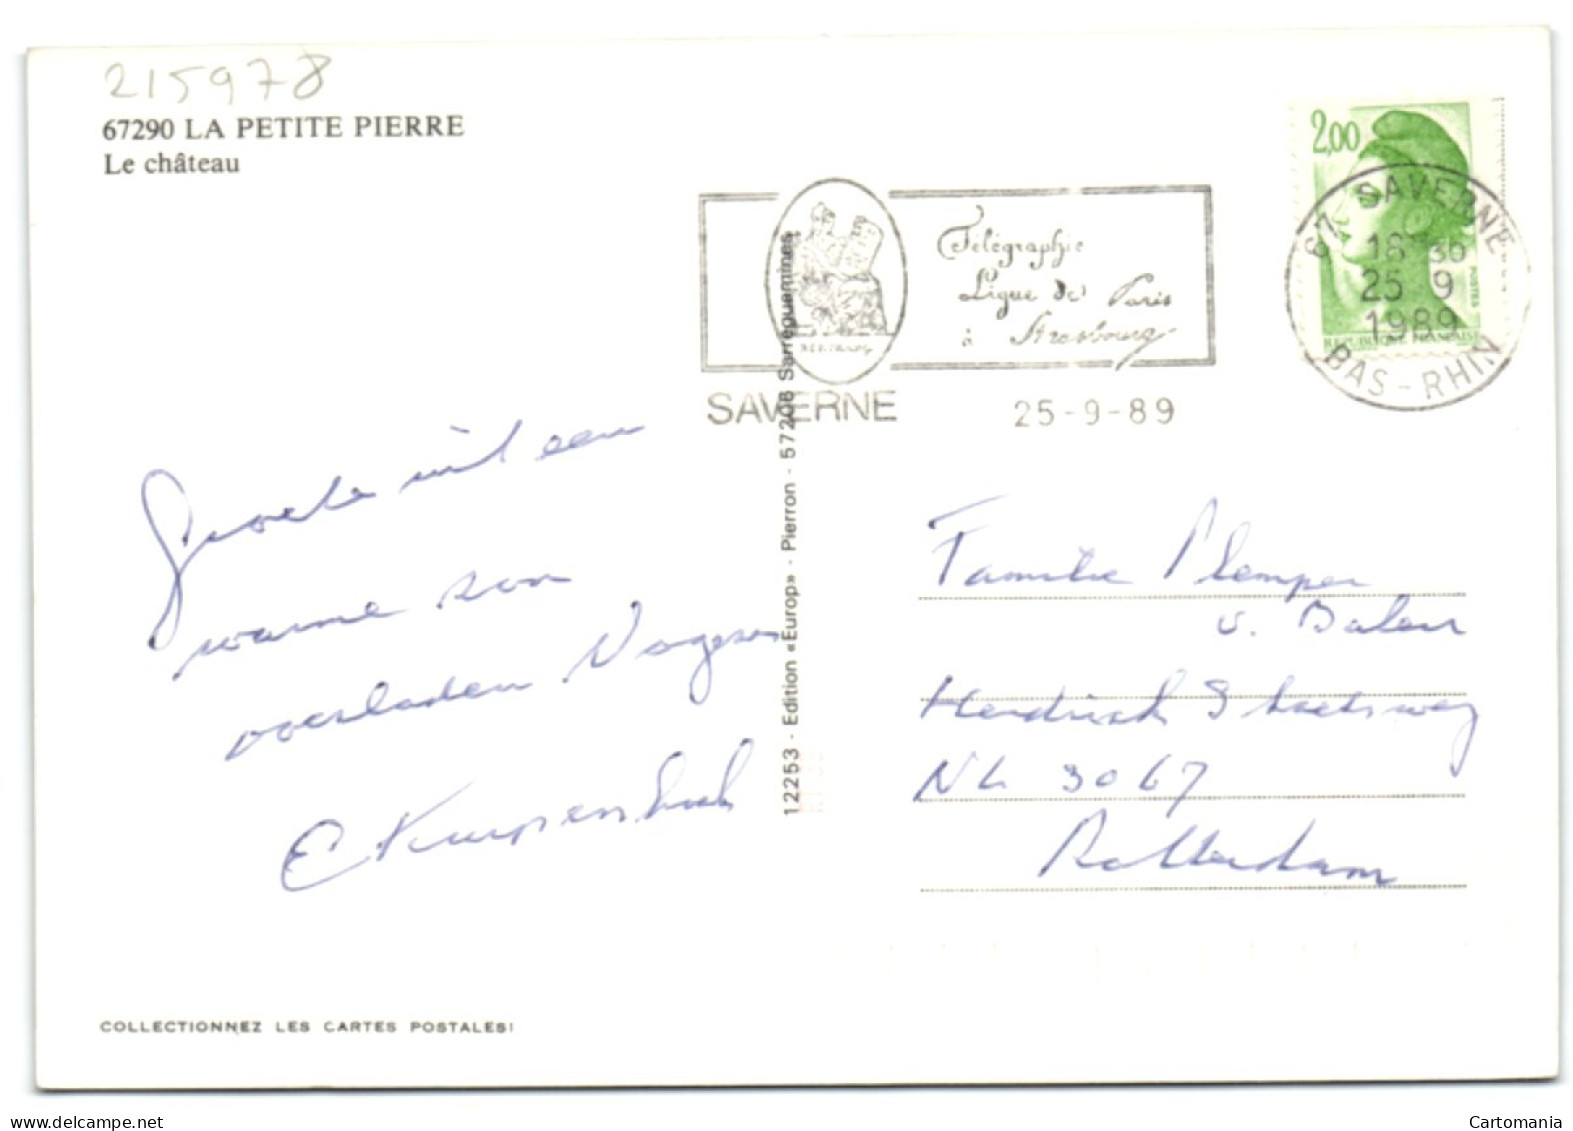 215978
67290 LA PETITE PIERRE
Le château
2,00
POSTES
REPUBLIQUE FRANÇAISE
67 SAVERNE
16 H 30
25 9
1989
BAS-RHIN
Télégraphie
Ligne de Paris
à Strasbourg
SAVERNE
25-9-89
Groete uit een
warme zon
overladen Vogezen
12253 - Edition «Europ» - Pierron - 57206 Sarreguemines
Familie Plemper
v. Balen
Hendrick Staetsweg
NL 3067
Rotterdam
COLLECTIONNEZ LES CARTES POSTALES!
www.delcampe.net
Cartomania